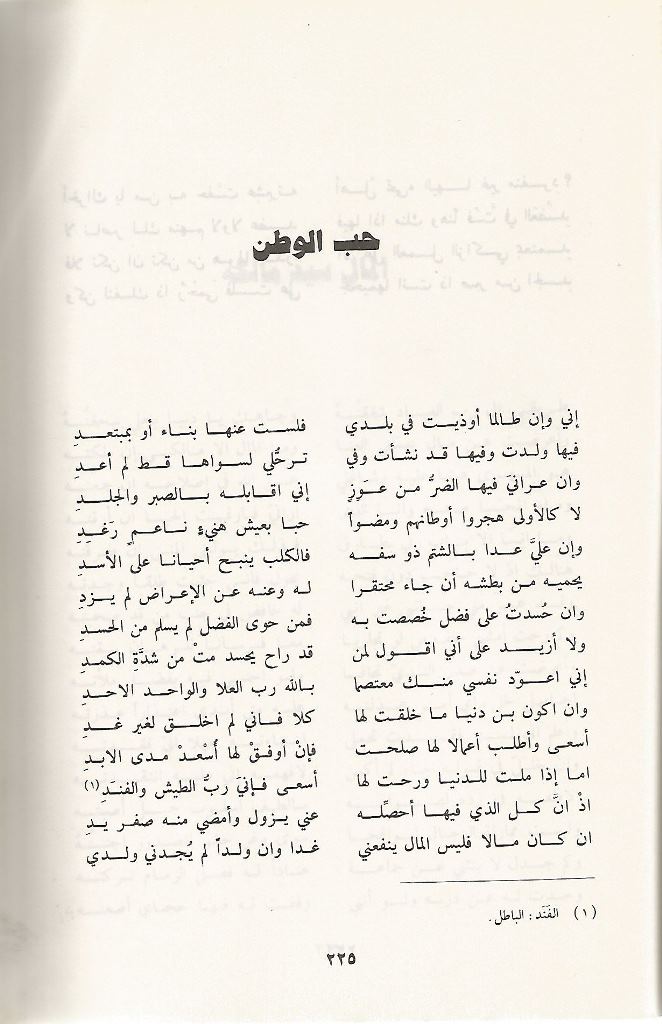 حب الوطن
إني وإن طالما أوذيت في بلدي فلست عنها بناء أو بمبتعدِ
فيها ولدت وفيها قد نشأت وفي ترحُّلي لسواها قط لم أعدِ
وان عرانيَ فيها الضرُّ من عوَزٍ إني اقابله بالصبر والجلدِ
لا كالأولى هجروا أوطانهم ومضواْ حبا بعيش هنيءٍ ناعمٍ رَغَدِ
وإن عليَّ عدا بالشتم ذو سفه فالكلب ينبح أحيانا على الأسدِ
يحميه من بطشه أن جاء محتقرا له وعنه عن الإعراض لم يزدِ
وان حُسدتُ على فضل خُصصت به فمن حوى الفضل لم يسلم من الحسدِ
ولا أزيد على أني اقول لمن قد راح يحسد متْ من شدَّةِ الكمدِ
إني اعوّد نفسي منك معتصما بالله رب العلا والواحد الاحدِ
وان اكون بن دنيا ما خلقت لها كلا فاني لم اخلق لغير غدِ
أسعى وأطلب أعمالا لها صلحت فإنْ أوفقْ لها أُسْعدْ مدى الابدِ
اما إذا ملت للدنيا ورحت لها أسعى فإنيَ ربُّ الطيش والفندِ(١)
اذْ انَّ كل الذي فيها أحصِّله عني يزول وأمضي منه صفر يدِ
ان كان مالا فليس المال ينفعني غدا وان ولداً لم يُجدني ولدي
(١) الفَنَد : الباطل .
٢٢٥